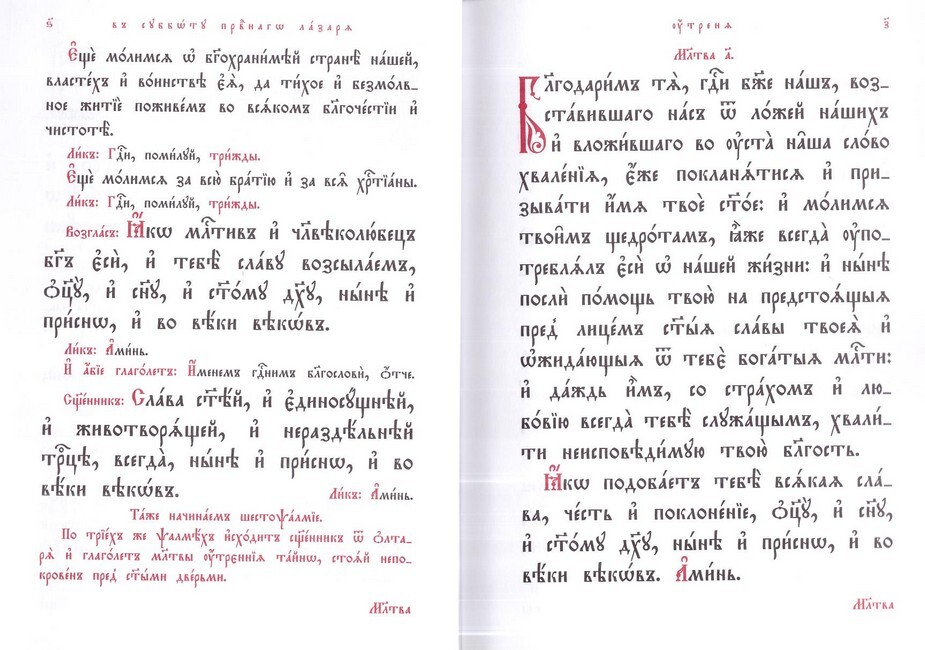 ѕ҃ въ сꙋббѡ́тꙋ првⷣнагѡ ла́зарѧ
Е҆щѐ мо́лимсѧ ѡ҆ бг҃охрани́мѣй странѣ̀ на́шей,
власте́хъ и҆ во́инствѣ є҆ѧ̀, да ти́хое и҆ безмо́лв_
ное житїѐ поживе́мъ во всѧ́комъ бл҃гоче́стїи и҆
чистотѣ̀.
Ли́къ: Гдⷭ҇и, поми́лꙋй, три́жды.
Е҆щѐ мо́лимсѧ за всю̀ бра́тїю и҆ за всѧ̑ хрⷭ҇тїа́ны.
Ли́къ: Гдⷭ҇и, поми́лꙋй, три́жды.
Возгла́съ: Ꙗ҆́кѡ млⷭ҇тивъ и҆ чл҃вѣколю́бецъ
бг҃ъ є҆сѝ, и҆ тебѣ̀ сла́вꙋ возсыла́емъ,
ѻ҆ц҃ꙋ̀, и҆ сн҃ꙋ, и҆ ст҃о́мꙋ дх҃ꙋ, ны́нѣ и҆
при́снѡ, и҆ во вѣ́ки вѣкѡ́въ.
Ли́къ: А҆ми́нь.
И҆ а҆́бїе глаго́летъ: И҆́менемъ гдⷭ҇нимъ благословѝ, ѻ҆́тче.
Сщ҃е́нникъ: Сла́ва ст҃ѣ́й, и҆ є҆диносꙋ́щнѣй,
и҆ животворѧ́щей, и҆ нераздѣ́льнѣй
трⷪ҇цѣ, всегда̀, ны́нѣ и҆ при́снѡ, и҆ во
вѣ́ки вѣкѡ́въ. Ли́къ: А҆ми́нь.
Та́же начина́емъ шестоѱа́лмїе.
По трїе́хъ же ѱалмѣ́хъ и҆схо́дитъ сщ҃е́нникъ ѿ ѻ҆лта_
рѧ̀ и҆ глаго́летъ мл҃твы оу҆́трєннїѧ та́йнѡ, стоѧ́й непо_
крове́нъ пред̾ ст҃ы́ми две́рьми.
Мл҃тва
оу҆́тренѧ з҃
Мл҃тва а҃.
Благодари́мъ тѧ̀, гдⷭ҇и бж҃е на́шъ, воз_
ста́вившаго на́съ ѿ ло́жей на́шихъ
и҆ вложи́вшаго во оу҆ста̀ на̑ша сло́во
хвале́нїѧ, є҆́же покланѧ́тисѧ и҆ при_
зыва́ти и҆́мѧ твоѐ ст҃о́е: и҆ мо́лимсѧ
твои̑мъ щедро́тамъ, ꙗ҆̀же всегда̀ оу҆по_
треблѧ́лъ є҆сѝ ѡ҆ на́шей жи́зни: и҆ ны́нѣ
послѝ по́мощь твою̀ на предстоѧ́щыѧ
пред̾ лице́мъ ст҃ы́ѧ сла́вы твоеѧ̀ и҆
ѡ҆жида́ющыѧ ѿ тебє̀ бога́тыѧ млⷭ҇ти:
и҆ да́ждь и҆̀мъ, со стра́хомъ и҆ лю_
бо́вїю всегда̀ тебѣ̀ слꙋжа́щымъ, хвали́_
ти неисповѣди́мꙋю твою̀ бл҃гость.
Ꙗ҆́кѡ подоба́етъ тебѣ̀ всѧ́каѧ сла́_
ва, че́сть и҆ поклоне́нїе, ѻ҆ц҃ꙋ̀, и҆ сн҃ꙋ,
и҆ ст҃о́мꙋ дх҃ꙋ, ны́нѣ и҆ при́снѡ, и҆ во
вѣ́ки вѣкѡ́въ. А҆ми́нь.
Мл҃тва